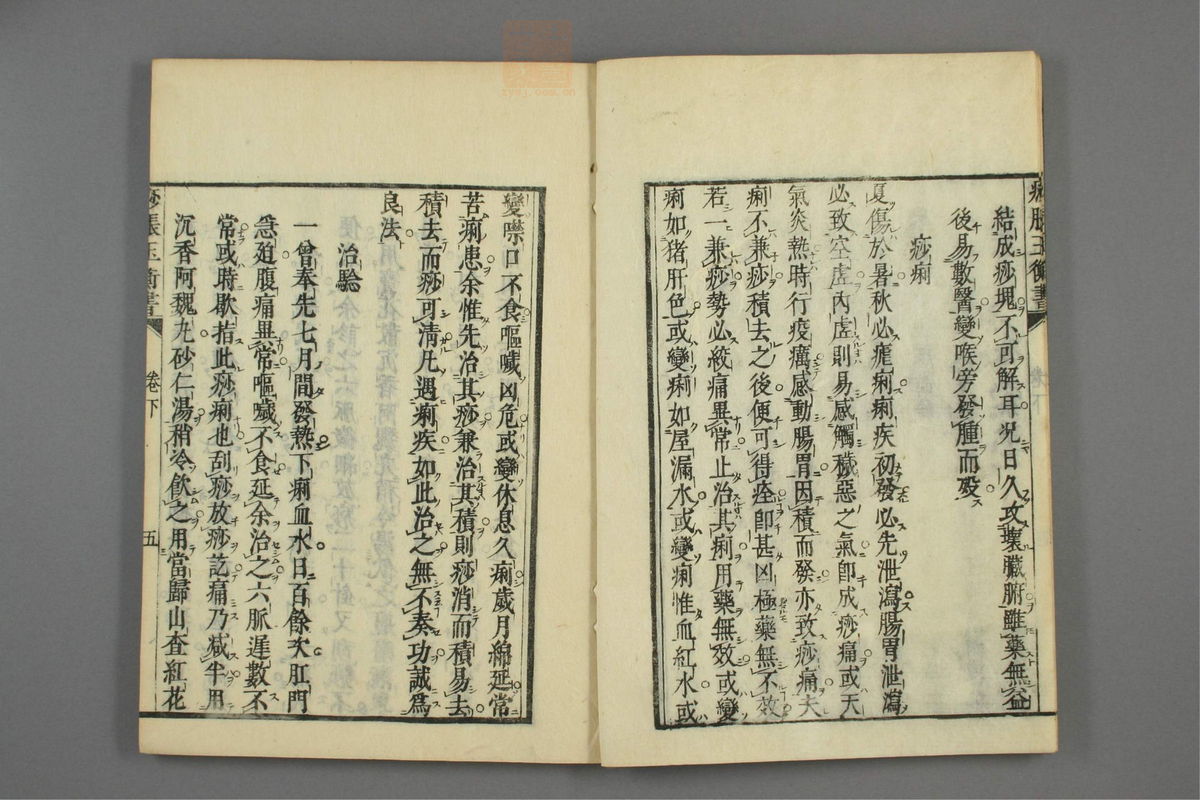 痧脹玉衡書
結成痧塊不可解耳況日久攻壞臟腑雖藥無益
後易數醫變喉旁發腫而歿
痧痢
夏傷於暑秋必瘧痢痢疾初發必先泄瀉腸胃泄瀉
必致空虛內虛則易感觸穢惡之氣卽成痧痛或天
氣炎熱時行疫癘感動腸胃因積而發亦致痧痛夫
痢不兼痧積去之後便可得痊卽甚凶極藥無不效
若一兼痧勢必絞痛異常止治其痢用藥無效或變
痢如猪肝色或變痢如屋漏水或變痢惟血紅水或
變噤口不食嘔噦凶危或變休息久痢歲月綿延常
苦痢患余惟先治其痧兼治其積則痧消而積易去
積去而痧可清凡遇痢疾如此治之無不奏功誠爲
良法
治驗
一曾奉先七月間發熱下痢血水日百餘次肛門
急廹腹痛異常嘔噦不食延余治之六脈遲數不
常或時歇㧞此痧痢也刮痧放痧訖痛乃减半用
沉香阿魏丸砂仁湯稍冷飮之用當歸山查紅花
痧脹玉衡書
卷下
五
zysj.com.cn